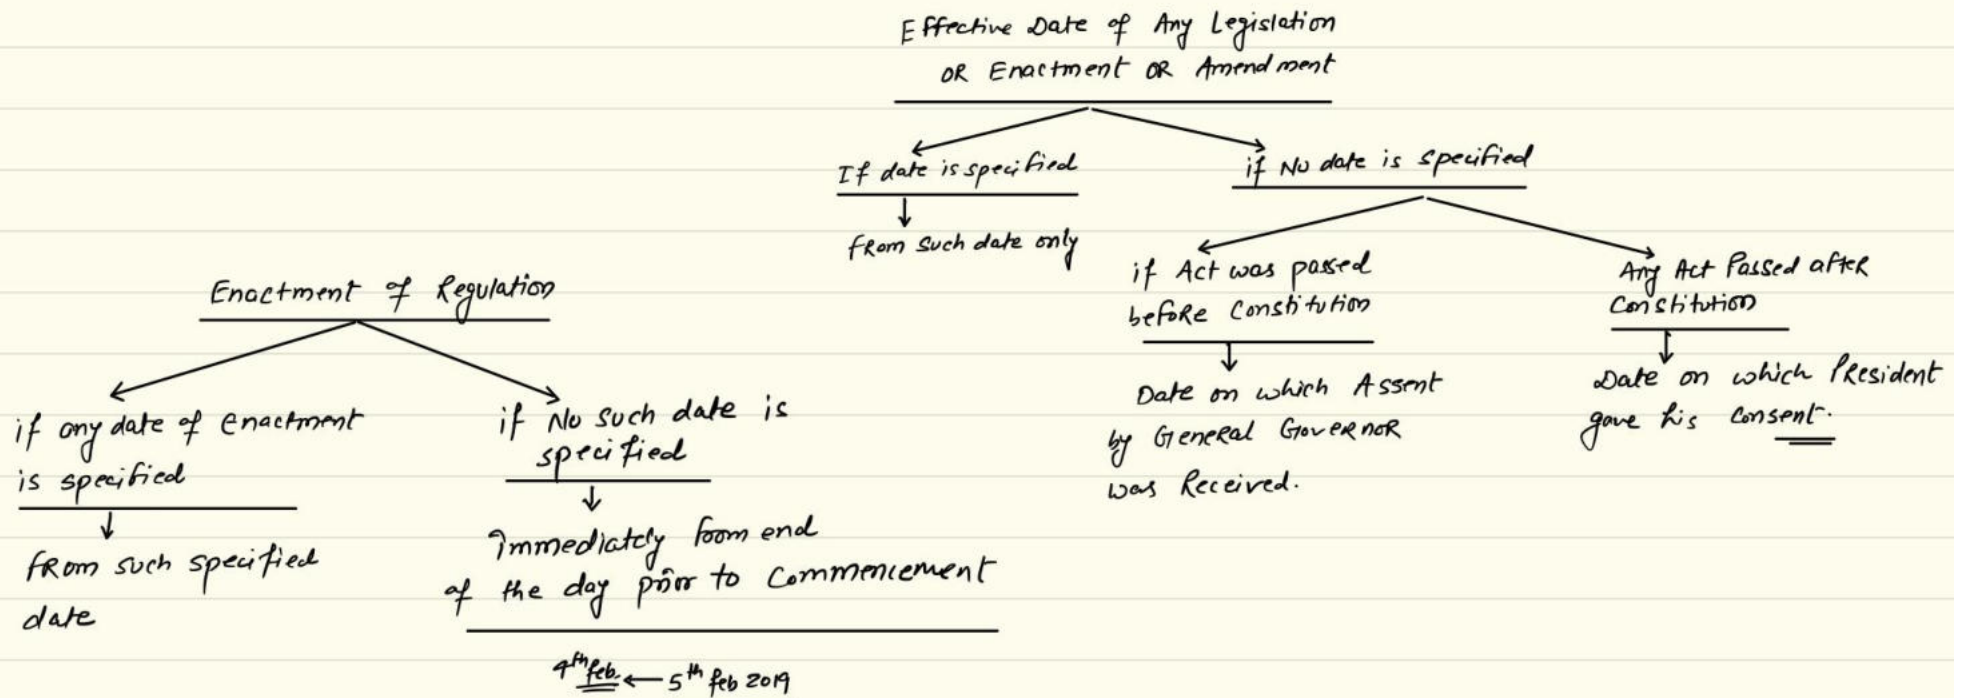 Effective Date of Any Legislation
OR Enactment OR Amendment
If date is specified
from such date only
if No date is specified
if Act was passed
before Constitution
Date on which Assent
by General Governor
was Received.
Any Act Passed after
Constitution
Date on which President
gave his Consent.
Enactment of Regulation
if any date of enactment
is specified
from such specified
date
if No such date is
specified
immediately from end
of the day prior to Commencement
4th feb. ← 5th feb 2019